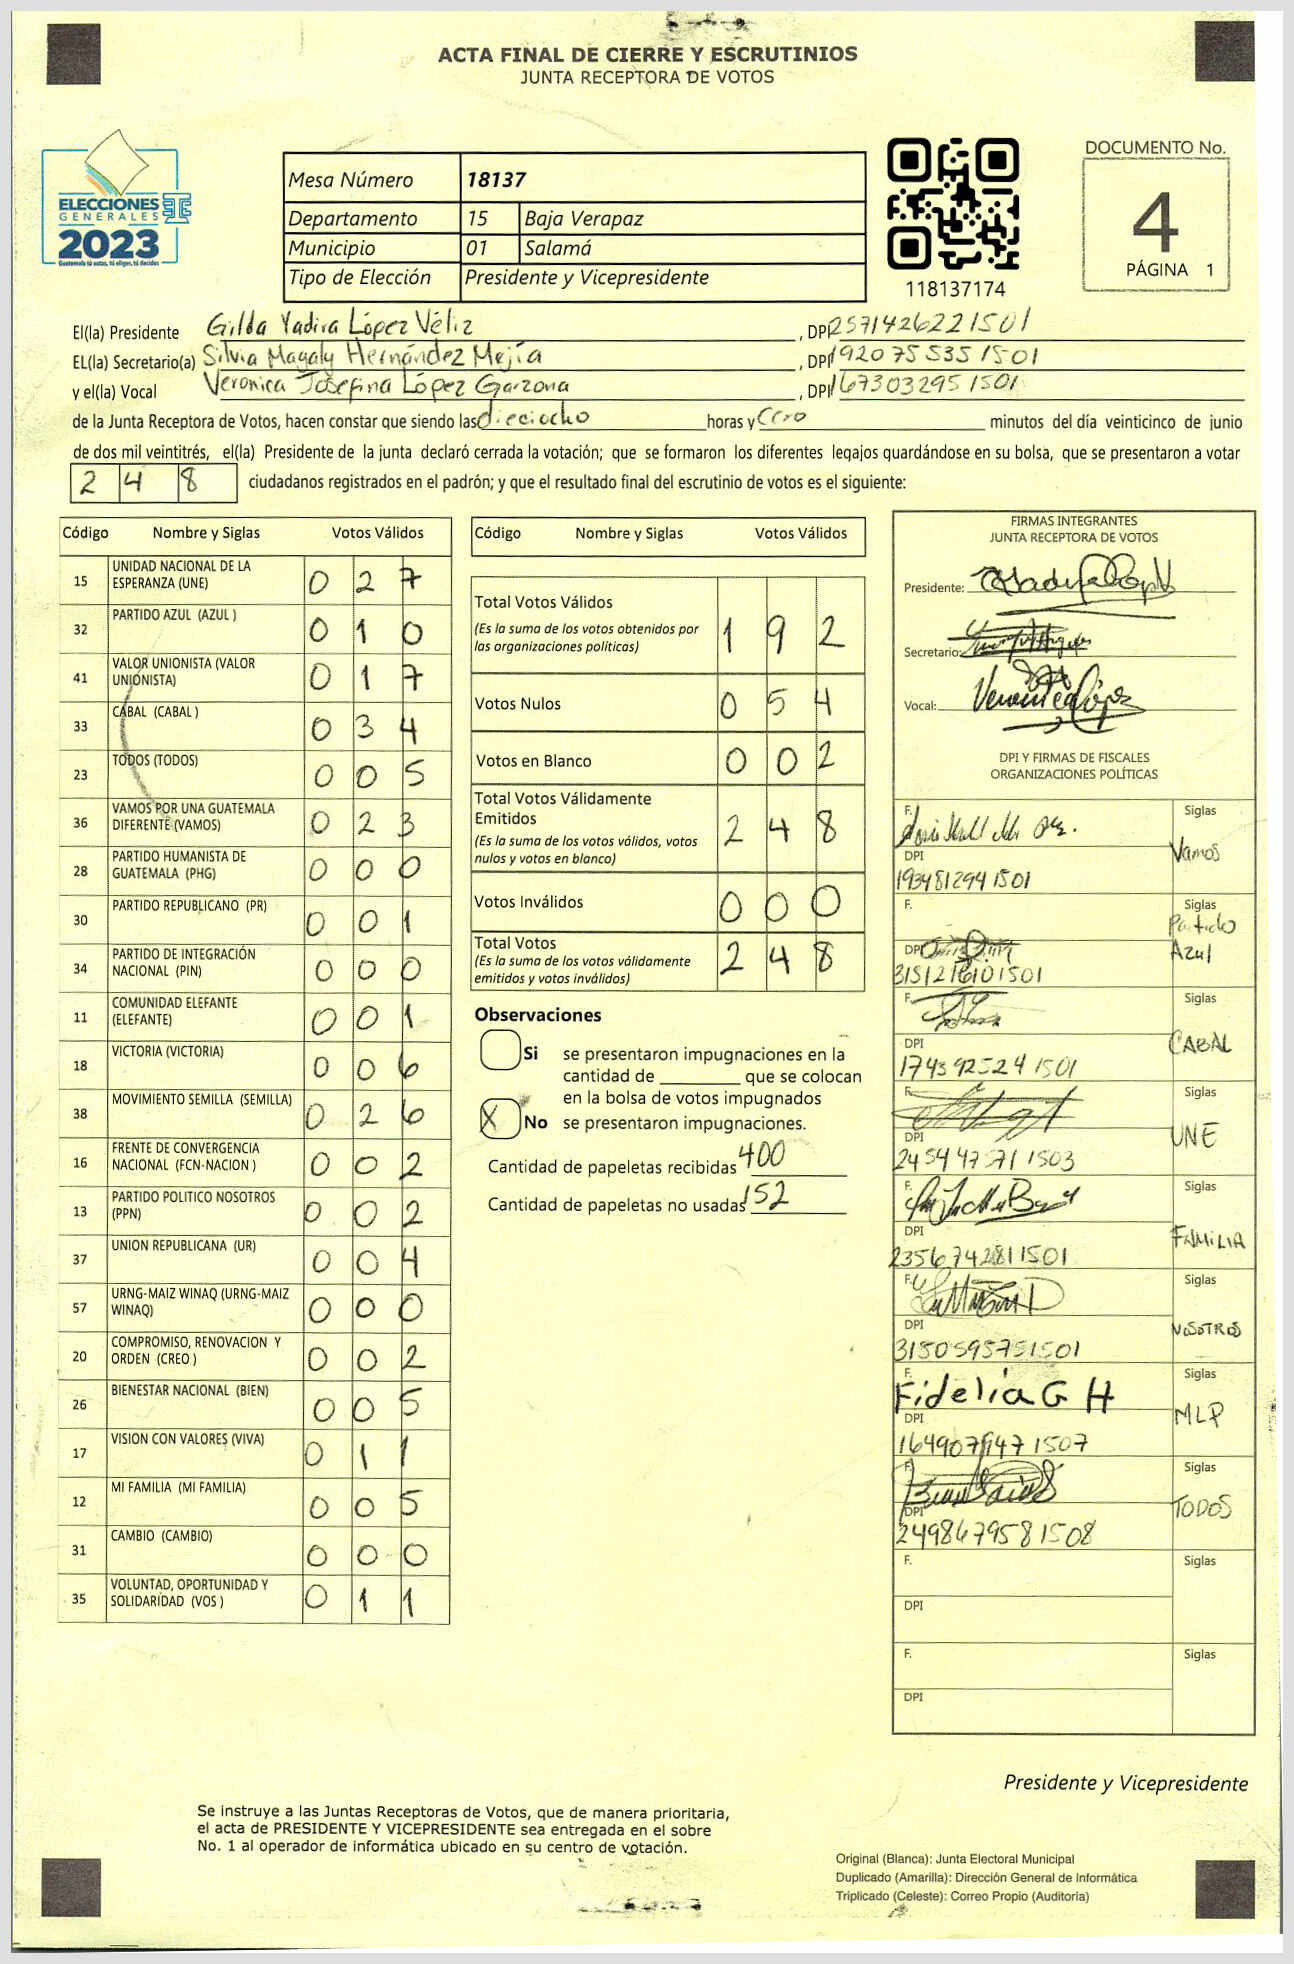 ACTA FINAL DE CIERRE Y ESCRUTINIOS
JUNTA RECEPTORA DE VOTOS
ELECCIONES
GENERALES
2023
Guatemala tú votas, tú eliges, tú decides
Mesa Número 18137
Departamento 15 Baja Verapaz
Municipio 01 Salamá
Tipo de Elección Presidente y Vicepresidente
118137174
DOCUMENTO No.
4
PÁGINA 1
El(la) Presidente Gilda Yadira López Véliz, DPI 2571426221501
EL(la) Secretario(a) Silvia Magaly Hernández Mejía, DPI 1920755351501
y el(la) Vocal Veronica Josefina López Garzona, DPI 1673032951501
de la Junta Receptora de Votos, hacen constar que siendo las dieciocho horas y cero minutos del día veinticinco de junio
de dos mil veintitrés, el(la) Presidente de la junta declaró cerrada la votación; que se formaron los diferentes legajos guardándose en su bolsa, que se presentaron a votar
2 4 8 ciudadanos registrados en el padrón; y que el resultado final del escrutinio de votos es el siguiente:
Código Nombre y Siglas Votos Válidos
15 UNIDAD NACIONAL DE LA ESPERANZA (UNE) 0 2 7
32 PARTIDO AZUL (AZUL ) 0 1 0
41 VALOR UNIONISTA (VALOR UNIONISTA) 0 1 7
33 CABAL (CABAL ) 0 3 4
23 TODOS (TODOS) 0 0 5
36 VAMOS POR UNA GUATEMALA DIFERENTE (VAMOS) 0 2 3
28 PARTIDO HUMANISTA DE GUATEMALA (PHG) 0 0 0
30 PARTIDO REPUBLICANO (PR) 0 0 1
34 PARTIDO DE INTEGRACIÓN NACIONAL (PIN) 0 0 0
11 COMUNIDAD ELEFANTE (ELEFANTE) 0 0 1
18 VICTORIA (VICTORIA) 0 0 6
38 MOVIMIENTO SEMILLA (SEMILLA) 0 2 6
16 FRENTE DE CONVERGENCIA NACIONAL (FCN-NACION ) 0 0 2
13 PARTIDO POLITICO NOSOTROS (PPN) 0 0 2
37 UNION REPUBLICANA (UR) 0 0 4
57 URNG-MAIZ WINAQ (URNG-MAIZ WINAQ) 0 0 0
20 COMPROMISO, RENOVACION Y ORDEN (CREO ) 0 0 2
26 BIENESTAR NACIONAL (BIEN) 0 0 5
17 VISION CON VALORES (VIVA) 0 1 1
12 MI FAMILIA (MI FAMILIA) 0 0 5
31 CAMBIO (CAMBIO) 0 0 0
35 VOLUNTAD, OPORTUNIDAD Y SOLIDARIDAD (VOS ) 0 1 1
Código Nombre y Siglas Votos Válidos
Total Votos Válidos
(Es la suma de los votos obtenidos por
las organizaciones políticas) 1 9 2
Votos Nulos 0 5 4
Votos en Blanco 0 0 2
Total Votos Válidamente
Emitidos
(Es la suma de los votos válidos, votos
nulos y votos en blanco) 2 4 8
Votos Inválidos 0 0 0
Total Votos
(Es la suma de los votos válidamente
emitidos y votos inválidos) 2 4 8
Observaciones
Si se presentaron impugnaciones en la
cantidad de ________ que se colocan
en la bolsa de votos impugnados
X No se presentaron impugnaciones.
Cantidad de papeletas recibidas 400
Cantidad de papeletas no usadas 152
FIRMAS INTEGRANTES
JUNTA RECEPTORA DE VOTOS
Presidente:
Secretario:
Vocal: Veronica López
DPI Y FIRMAS DE FISCALES
ORGANIZACIONES POLÍTICAS
F. Siglas
Vamos
DPI
1934812941501
F. Siglas
Partido
Azul
DPI
F. Siglas
CABAL
DPI
1743925241501
F. Siglas
UNE
DPI
2454475711503
F. Siglas
FAMILIA
DPI
2356742811501
F. Siglas
NOSOTROS
DPI
3150595751501
F. Siglas
Fidelia G H
MLP
DPI
F. Siglas
TODOS
DPI
2498679581508
F. Siglas
DPI
F. Siglas
DPI
Presidente y Vicepresidente
Se instruye a las Juntas Receptoras de Votos, que de manera prioritaria,
el acta de PRESIDENTE Y VICEPRESIDENTE sea entregada en el sobre
No. 1 al operador de informática ubicado en su centro de votación.
Original (Blanca): Junta Electoral Municipal
Duplicado (Amarilla): Dirección General de Informática
Triplicado (Celeste): Correo Propio (Auditoría)